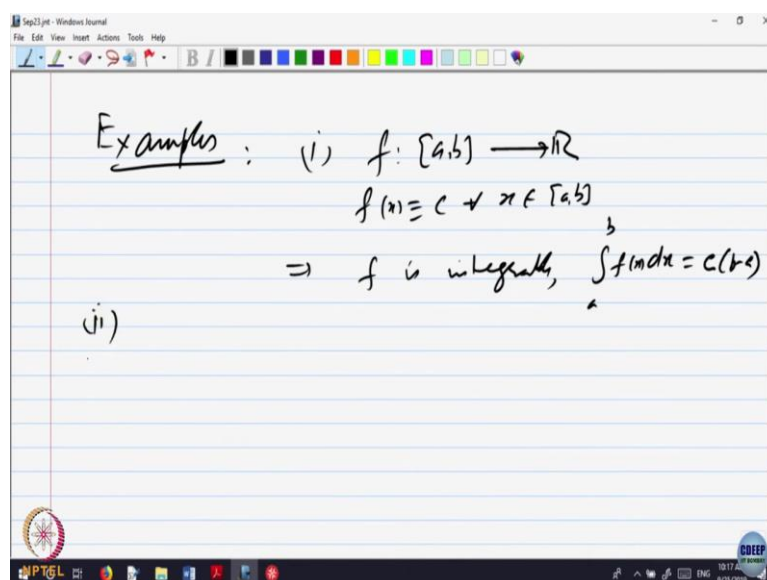 Sep23.jnt - Windows Journal
File Edit View Insert Actions Tools Help
B I
Examples : (i) f : [a,b] ⟶ ℝ
f(x) ≡ c ∀ x ∈ [a,b]
⇒ f is integrable, ∫_a^b f(x)dx = c(b-a)
(ii)
NPTEL
CDEEP
IIT BOMBAY
ENG
10:17 A